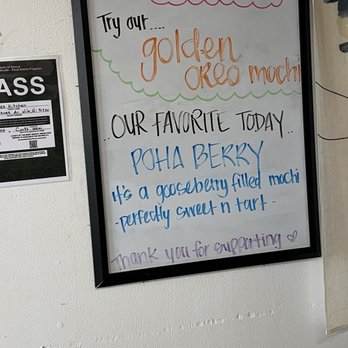 Try our....
golden
oreo mochi
..OUR FAVORITE TODAY..
POHA BERRY
it's a gooseberry filled mochi
-perfectly sweet n tart-
Thank you for supporting ♡
ASS
Kitchen